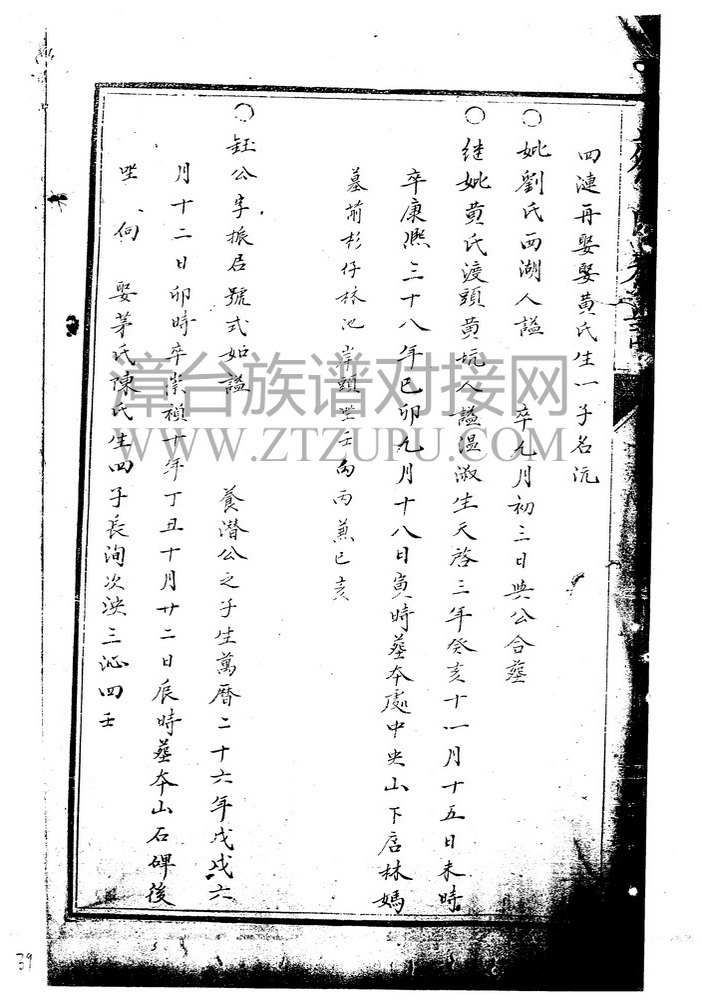 四漣再娶娶黃氏生一子名沅
○妣劉氏西湖人謚 卒九月初三日與公合葬
○继妣黄氏渡頭黄坑人謚温淑生天啓三年癸亥十一月十五日未時
卒康熙三十八年已卯九月十八日寅時葬本處中央山下店林媽
墓前杉仔林池 頭坐壬向丙兼已亥
○鈺公字振居號式如謚 養潛公之子生萬曆二十六年戊戌六
月十二日卯時卒崇禎十年丁丑十月廿二日辰時葬本山石碑後
坐 向 娶茅氏陳氏生四子長洵次泱三沁四壬
漳台族谱对接网
WWW.ZTZUPU.COM
39